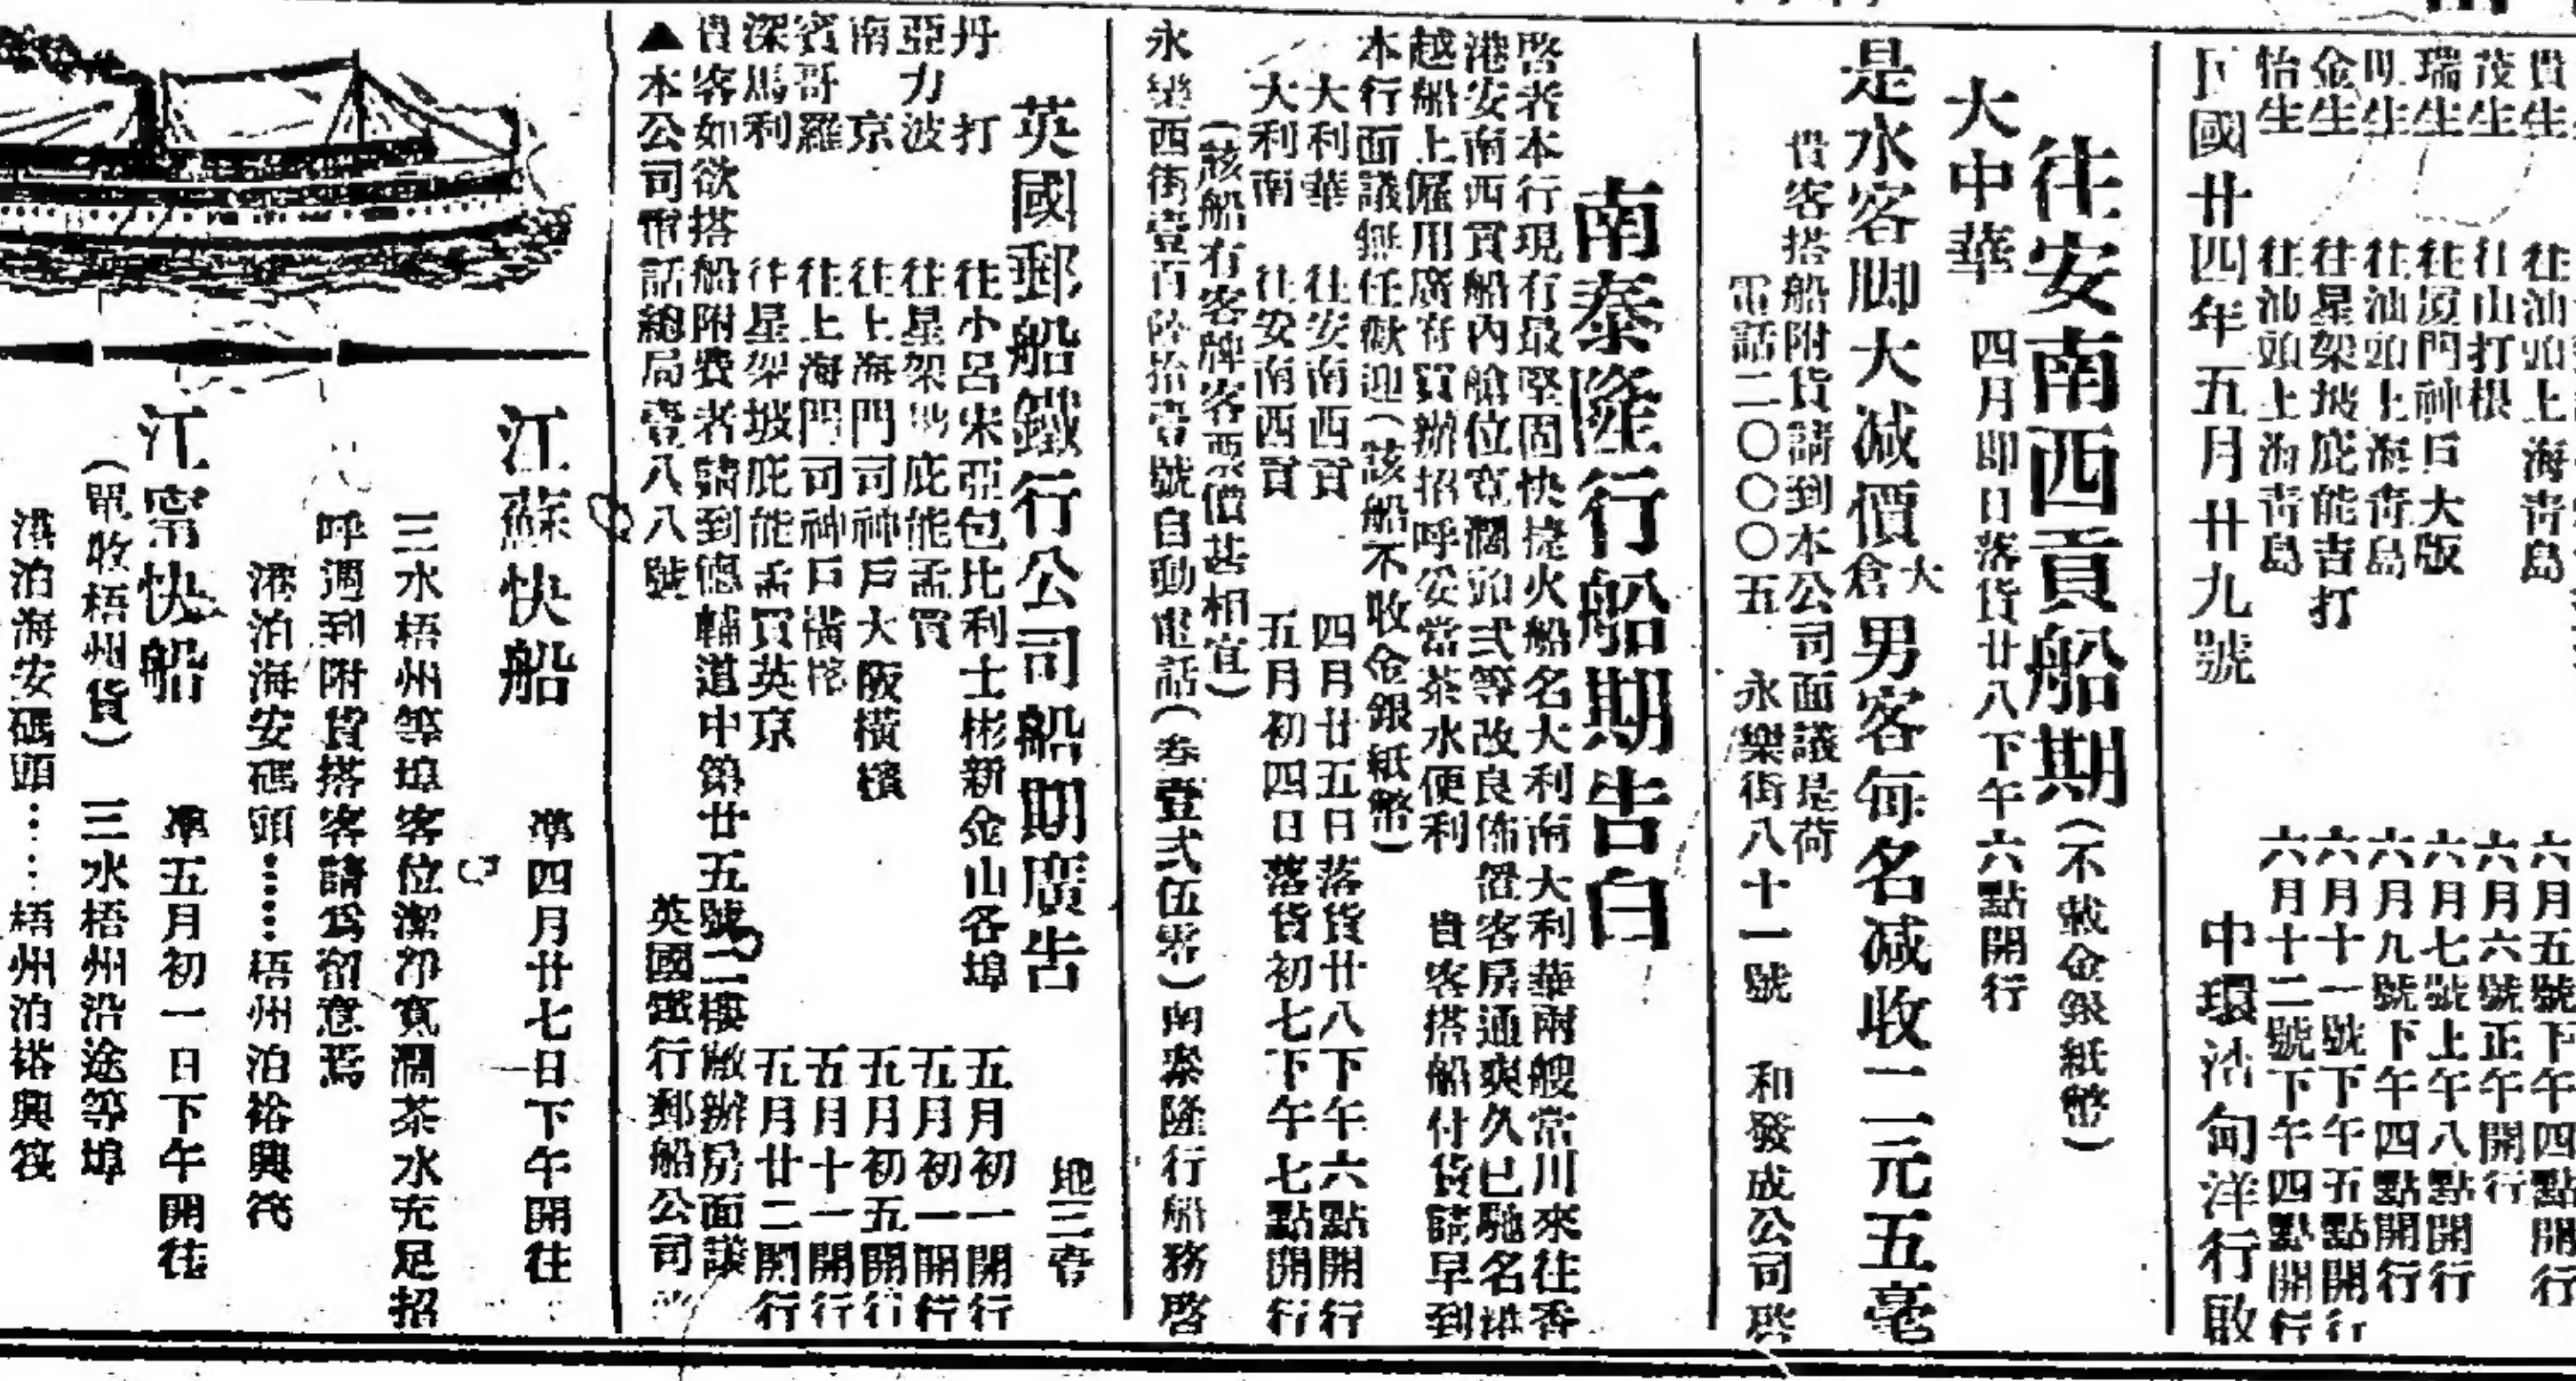 貴生 往汕頭上海青島 六月五號下午四點開行
茂生 往山打根 六月六號正午開行
瑞生 往厦門神戶大版 六月七號上午八點開行
明生 往汕頭上海青島 六月九號下午四點開行
金生 往星架坡庇能吉打 六月十一號下午五點開行
怡生 往汕頭上海青島 六月十二號下午四點開行
民國廿四年五月廿九號 中環渣甸洋行啟
往安南西貢船期(不載金銀紙幣)
大中華 四月即日落貨廿八下午六點開行
是水客脚大減價大倉男客每名減收二元五毫
貴客搭船附貨請到本公司面議是荷
電話二〇〇〇五 永樂街八十一號 和發成公司啓
南泰隆行船期告白
啓者本行現有最堅固快捷火船名大利南大利華兩艘常川來往香
港安南西貢船內艙位寬濶頭弍等改良佈置客房通爽久已馳名港
越船上僱用廣府買辦招呼妥當茶水便利 貴客搭船付貨請早到
本行面議無任歡迎(該船不收金銀紙幣)
大利華 往安南西貢 四月廿五日落貨廿八下午六點開行
大利南 往安南西貢 五月初四日落貨初七下午七點開行
(該船有客牌客票價甚相宜)
永樂西街壹百陸拾壹號自動電話(叁壹弍伍零)南泰隆行船務啓
英國郵船鐵行公司船期廣告 地三壹
丹打 往小呂宋亞包比利士彬新金山各埠 五月初一開行
亞力波 往星架坡庇能孟買 五月初一開行
南京 往上海門司神戶大阪橫檳 五月初五開行
賓哥羅 往上海門司神戶橫檳 五月十一開行
深馬利 往星架坡庇能孟買英京 五月廿二開行
貴客如欲搭船附費者請到德輔道中第廿五號二樓敝辦房面議
▲本公司電話總局壹八八號 英國鐵行郵船公司
江蘇快船 準四月廿七日下午開往
三水梧州等埠客位潔淨寬濶茶水充足招
呼週到附貨搭客請爲留意焉
港泊海安碼頭⋯⋯梧州泊裕興筏
江甯快船 準五月初一日下午開往
(單收梧州貨) 三水梧州沿途等埠
港泊海安碼頭⋯⋯梧州泊裕興筏